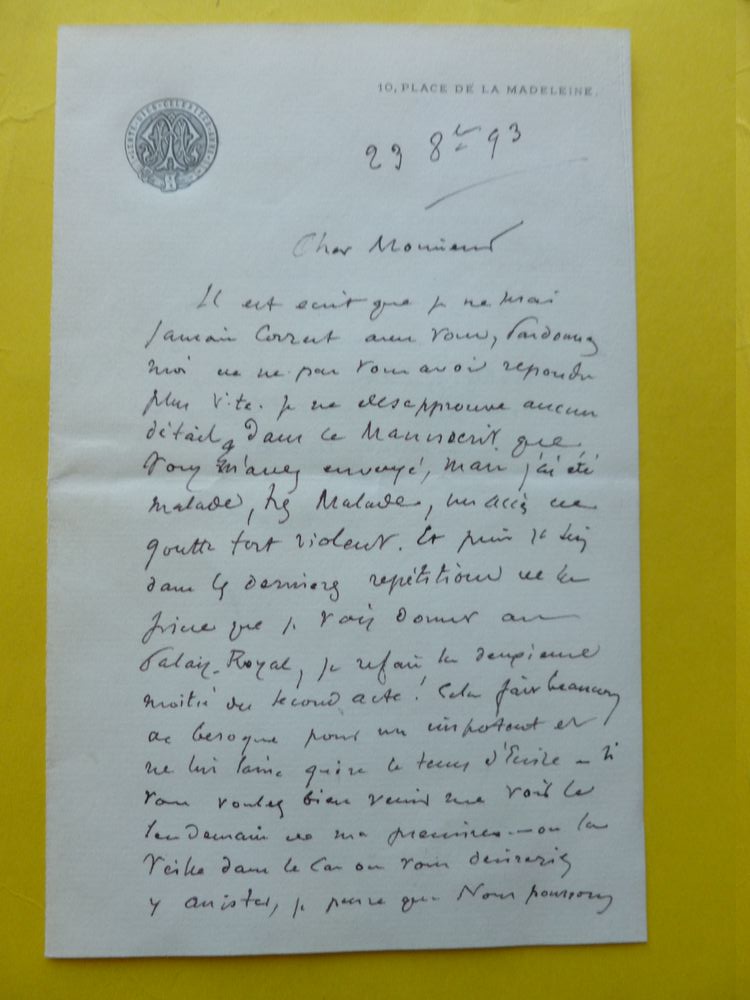 10, PLACE DE LA MADELEINE.
23 8bre 93
Cher Monsieur
Il est ecrit que je ne serai
jamais correct avec vous, pardonnez
moi de ne pas vous avoir repondu
plus vite. je ne desapprouve aucun
détail, dans le Manuscrit que
vous m'avez envoyé, mais j'ai été
malade, très Malade, un accès de
goutte fort violent. Et puis je suis
dans les dernieres repétitions de la
pièce que je vais donner au
Palais-Royal, je refais la deuxieme
moitié du second acte! Cela fait beaucoup
de besogne pour un impotent et
ne lui laisse guère le tems d'Ecrire – Si
vous voulez bien venir me voir le
lendemain de ma premiere – ou la
Veille dans le Cas ou vous desireriez
y assister, je pense que Nous pourrons